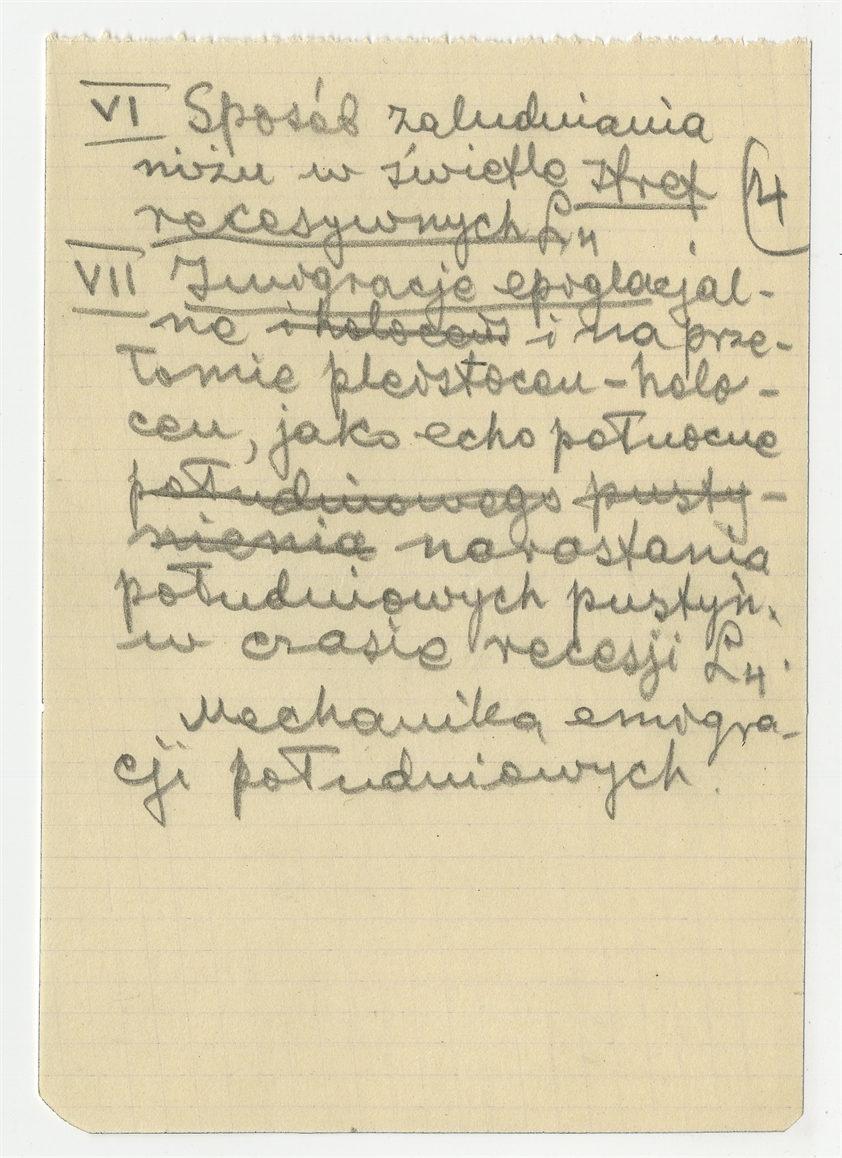 VI Sposób zaludniania
niżu w świetle stref (4
recesywnych L4
VII Imigracje epiglacjal-
ne i holocen i na prze-
łomie pleistocen-holo-
cen, jako echo północne
południowego pusty-
nienia narastania
południowych pustyń.
w czasie recesji L4.
Mechanika emigra-
cji południowych.